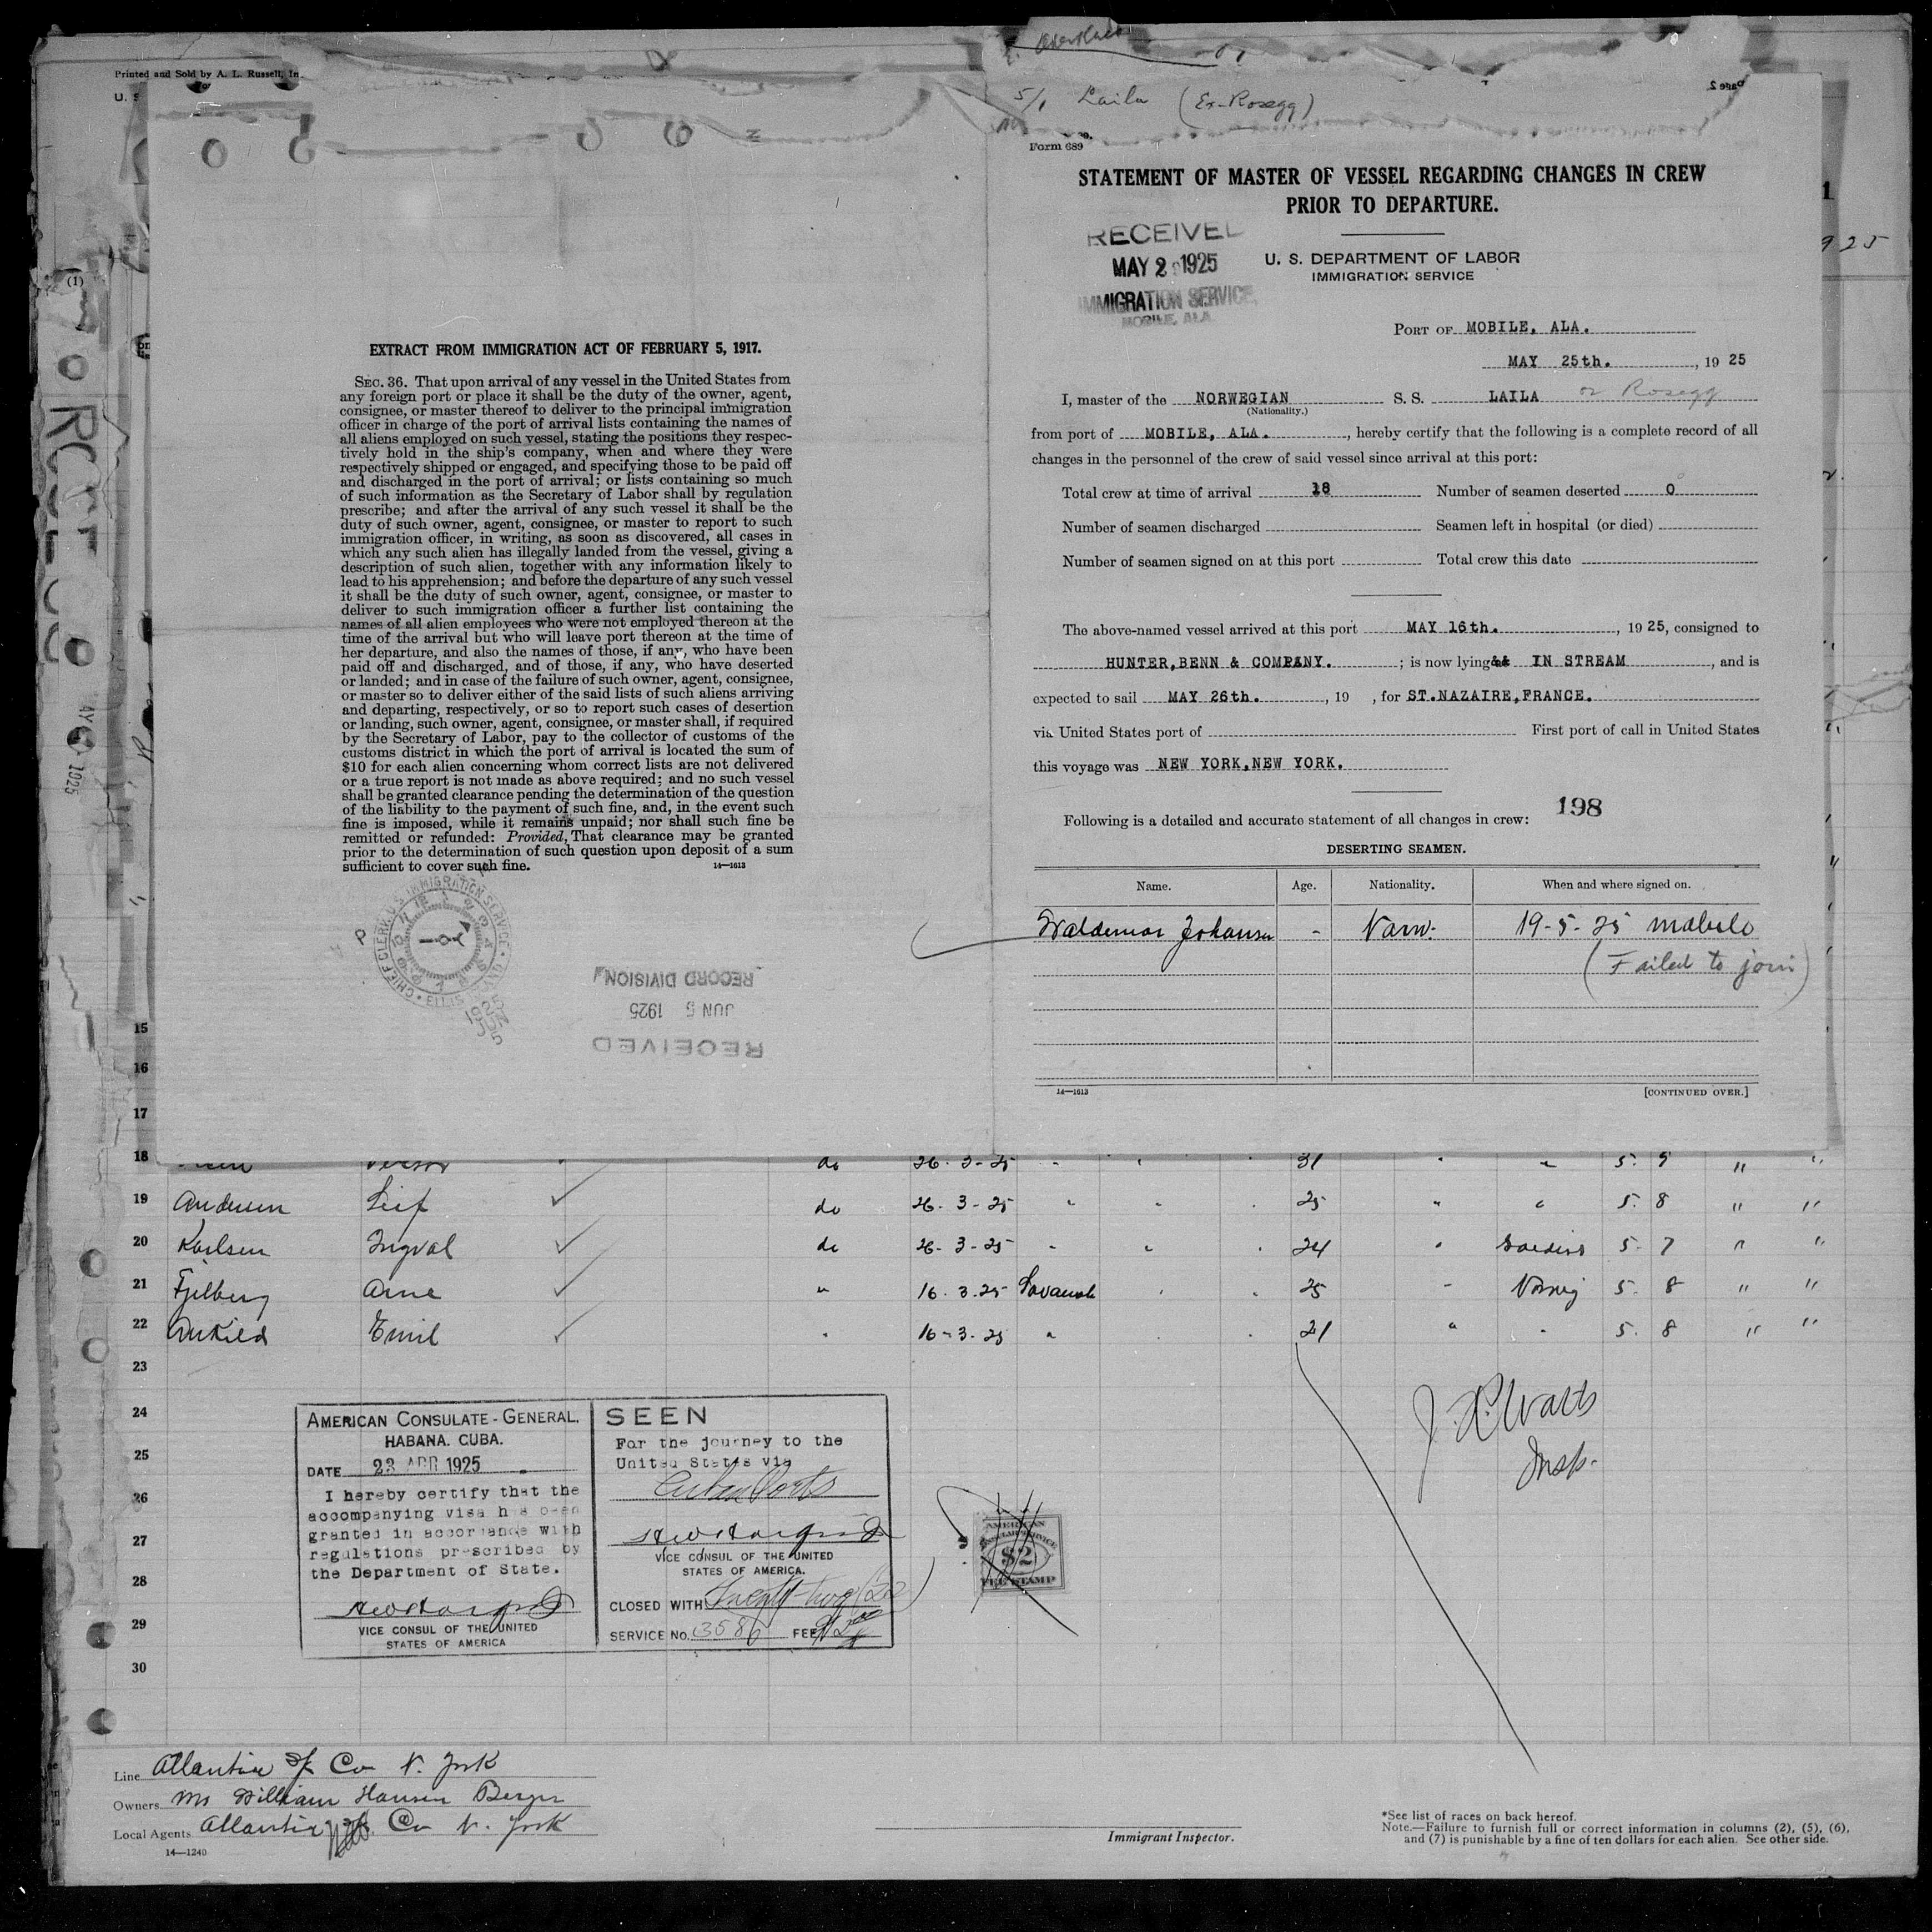 Printed and Sold by A. L. Russell, In
U. S
5/1 Laila (Ex-Rosegg)
Page 2
Form 689
STATEMENT OF MASTER OF VESSEL REGARDING CHANGES IN CREW
PRIOR TO DEPARTURE.
RECEIVED
MAY 2 1925
IMMIGRATION SERVICE,
MOBILE, ALA.
U. S. DEPARTMENT OF LABOR
IMMIGRATION SERVICE
PORT OF MOBILE, ALA.
MAY 25th., 1925
I, master of the NORWEGIAN S. S. LAILA or Rosegg
(Nationality.)
from port of MOBILE, ALA., hereby certify that the following is a complete record of all
changes in the personnel of the crew of said vessel since arrival at this port:
Total crew at time of arrival 18 Number of seamen deserted 0
Number of seamen discharged Seamen left in hospital (or died)
Number of seamen signed on at this port Total crew this date
The above-named vessel arrived at this port MAY 16th., 1925, consigned to
HUNTER,BENN & COMPANY.; is now lying IN STREAM, and is
expected to sail MAY 26th., 19 , for ST.NAZAIRE,FRANCE.
via United States port of First port of call in United States
this voyage was NEW YORK,NEW YORK.
198
Following is a detailed and accurate statement of all changes in crew:
DESERTING SEAMEN.
Name. Age. Nationality. When and where signed on.
Waldemar Johansen - Norw. 19-5-25 Mobile
(Failed to join)
14—1613 [CONTINUED OVER.]
EXTRACT FROM IMMIGRATION ACT OF FEBRUARY 5, 1917.
SEC. 36. That upon arrival of any vessel in the United States from
any foreign port or place it shall be the duty of the owner, agent,
consignee, or master thereof to deliver to the principal immigration
officer in charge of the port of arrival lists containing the names of
all aliens employed on such vessel, stating the positions they respec-
tively hold in the ship's company, when and where they were
respectively shipped or engaged, and specifying those to be paid off
and discharged in the port of arrival; or lists containing so much
of such information as the Secretary of Labor shall by regulation
prescribe; and after the arrival of any such vessel it shall be the
duty of such owner, agent, consignee, or master to report to such
immigration officer, in writing, as soon as discovered, all cases in
which any such alien has illegally landed from the vessel, giving a
description of such alien, together with any information likely to
lead to his apprehension; and before the departure of any such vessel
it shall be the duty of such owner, agent, consignee, or master to
deliver to such immigration officer a further list containing the
names of all alien employees who were not employed thereon at the
time of the arrival but who will leave port thereon at the time of
her departure, and also the names of those, if any, who have been
paid off and discharged, and of those, if any, who have deserted
or landed; and in case of the failure of such owner, agent, consignee,
or master so to deliver either of the said lists of such aliens arriving
and departing, respectively, or so to report such cases of desertion
or landing, such owner, agent, consignee, or master shall, if required
by the Secretary of Labor, pay to the collector of customs of the
customs district in which the port of arrival is located the sum of
$10 for each alien concerning whom correct lists are not delivered
or a true report is not made as above required; and no such vessel
shall be granted clearance pending the determination of the question
of the liability to the payment of such fine, and, in the event such
fine is imposed, while it remains unpaid; nor shall such fine be
remitted or refunded: Provided, That clearance may be granted
prior to the determination of such question upon deposit of a sum
sufficient to cover such fine. 14—1613
CHIEF CLERK, U.S. IMMIGRATION SERVICE, ELLIS ISLAND
RECEIVED
JUN 5 1925
RECORD DIVISION
15
16
17
18 do 26-3-25 31 5. 9 " "
19 Andersen Leif do 26-3-25 " " 25 " " 5. 8 " "
20 Karlsen Ingval do 26-3-25 " " 24 " Swedish 5. 7 " "
21 Fjelberg Arne " 16.3.25 Savanah 25 " Norwg 5. 8 " "
22 Emil " 16-3-25 " 21 " " 5. 8 " "
23
24
25
26
27
28
29
30
AMERICAN CONSULATE-GENERAL.
HABANA. CUBA.
DATE 23 APR 1925
I hereby certify that the
accompanying visa has been
granted in accordance with
regulations prescribed by
the Department of State.
VICE CONSUL OF THE UNITED
STATES OF AMERICA
SEEN
For the journey to the
United States via
Cuban Ports
VICE CONSUL OF THE UNITED
STATES OF AMERICA.
CLOSED WITH Twenty-two (22)
SERVICE No. 3586 FEE $2.00
AMERICAN
CONSULAR SERVICE
$2
FEE STAMP
J. R. Watts
Insp.
Line Atlantic Co N. York
Owners Mr William Hansen Bergen
Local Agents Atlantic Co N. York
14—1240
Immigrant Inspector.
*See list of races on back hereof.
Note.—Failure to furnish full or correct information in columns (2), (5), (6),
and (7) is punishable by a fine of ten dollars for each alien. See other side.